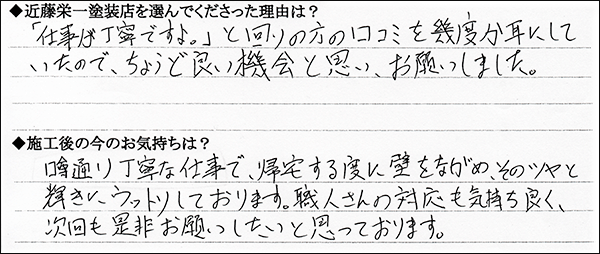 ◆近藤栄一塗装店を選んでくださった理由は?
「仕事が丁寧ですよ。」と回りの方の口コミを幾度か耳にして
いたので、ちょうど良い機会と思い、お願いしました。
◆施工後の今のお気持ちは?
噂通り丁寧な仕事で、帰宅する度に壁をながめ、そのツヤと
輝きに、ウットリしております。職人さんの対応も気持ち良く、
次回も是非お願いしたいと思っております。